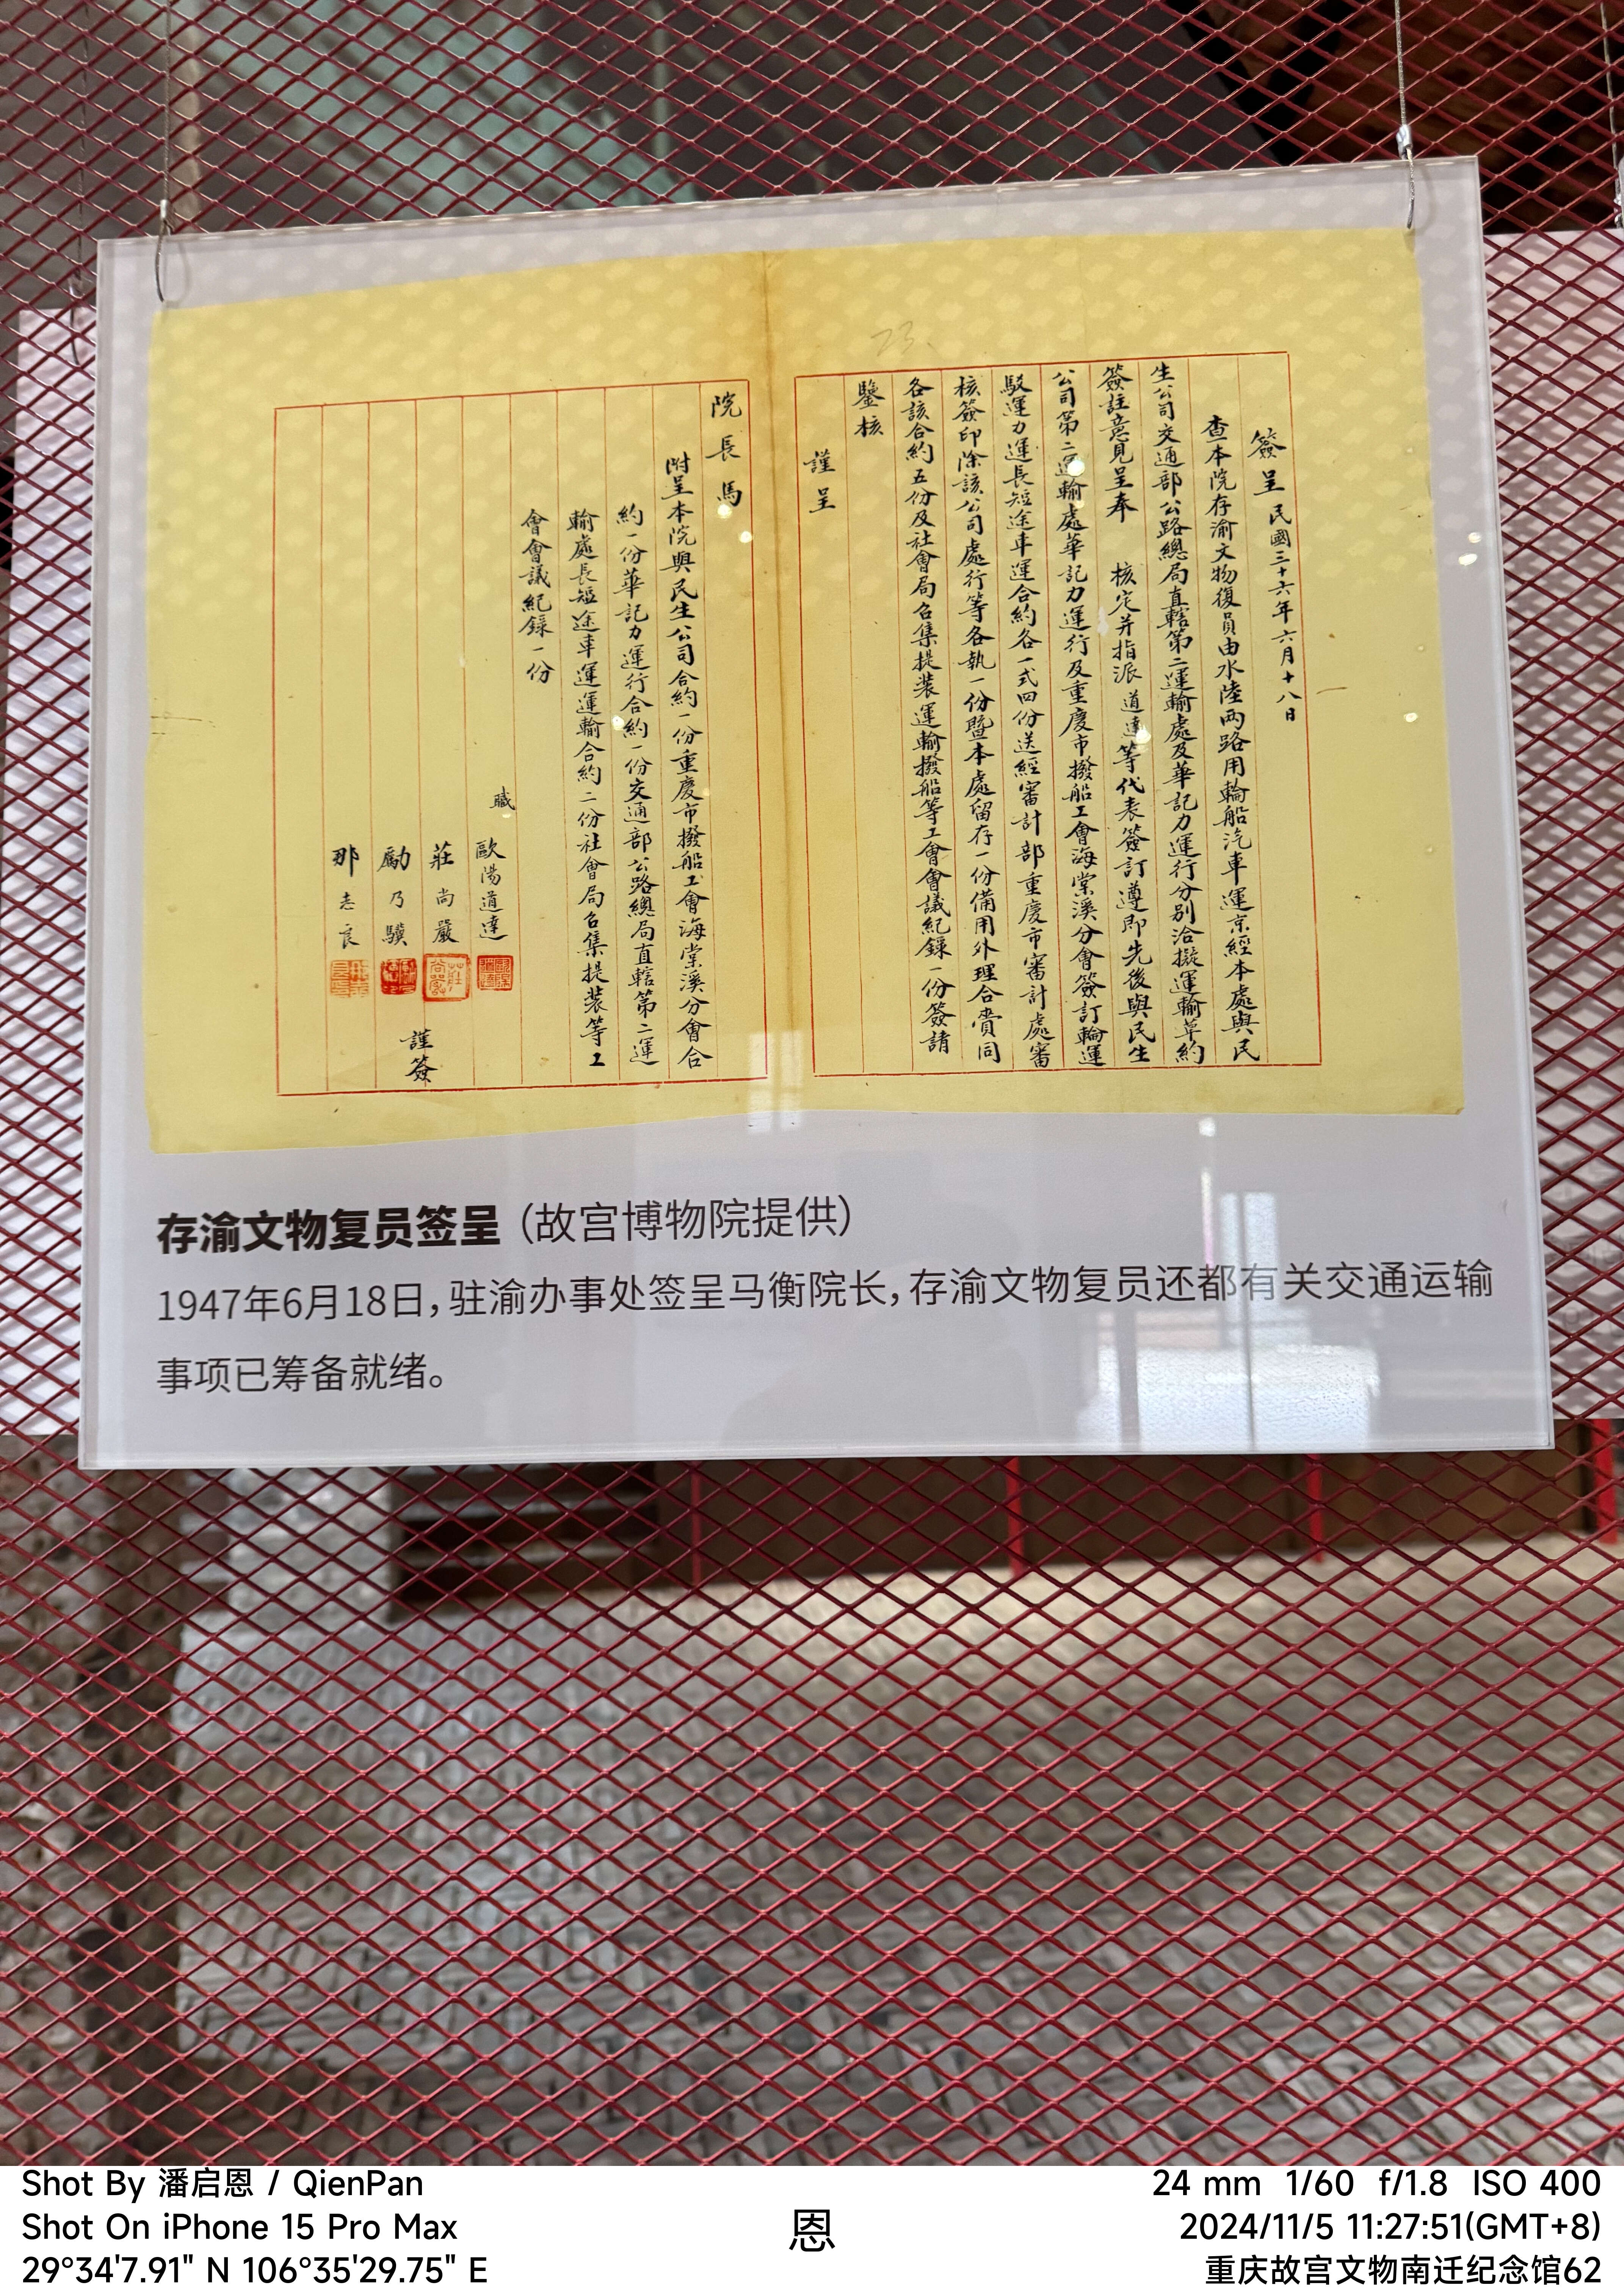 23.
簽呈 民國三十六年六月十八日
查本院存渝文物復員由水陸兩路用輪船汽車運京經本處與民
生公司交通部公路總局直轄第二運輸處及華記力運行分別洽擬運輸草約
簽註意見呈奉 核定并指派道達等代表簽訂遵即先後與民生
公司第二運輸處華記力運行及重慶市撥船工會海棠溪分會簽訂輪運
駁運力運長短途車運合約各一式四份送經審計部重慶市審計處審
核簽印除該公司處行等各執一份暨本處留存一份備用外理合賫同
各該合約五份及社會局召集提裝運輸撥船等工會會議紀錄一份簽請
鑒核
謹呈
院長馬
附呈本院與民生公司合約一份重慶市撥船工會海棠溪分會合
約一份華記力運行合約一份交通部公路總局直轄第二運
輸處長短途車運運輸合約二份社會局召集提裝等工
會會議紀錄一份
職 歐陽道達
莊尚嚴
勵乃驥
那志良
謹簽
存渝文物复员签呈（故宫博物院提供）
1947年6月18日，驻渝办事处签呈马衡院长，存渝文物复员还都有关交通运输
事项已筹备就绪。
Shot By 潘启恩 / QienPan
Shot On iPhone 15 Pro Max
29°34'7.91" N 106°35'29.75" E
恩
24 mm 1/60 f/1.8 ISO 400
2024/11/5 11:27:51(GMT+8)
重庆故宫文物南迁纪念馆62